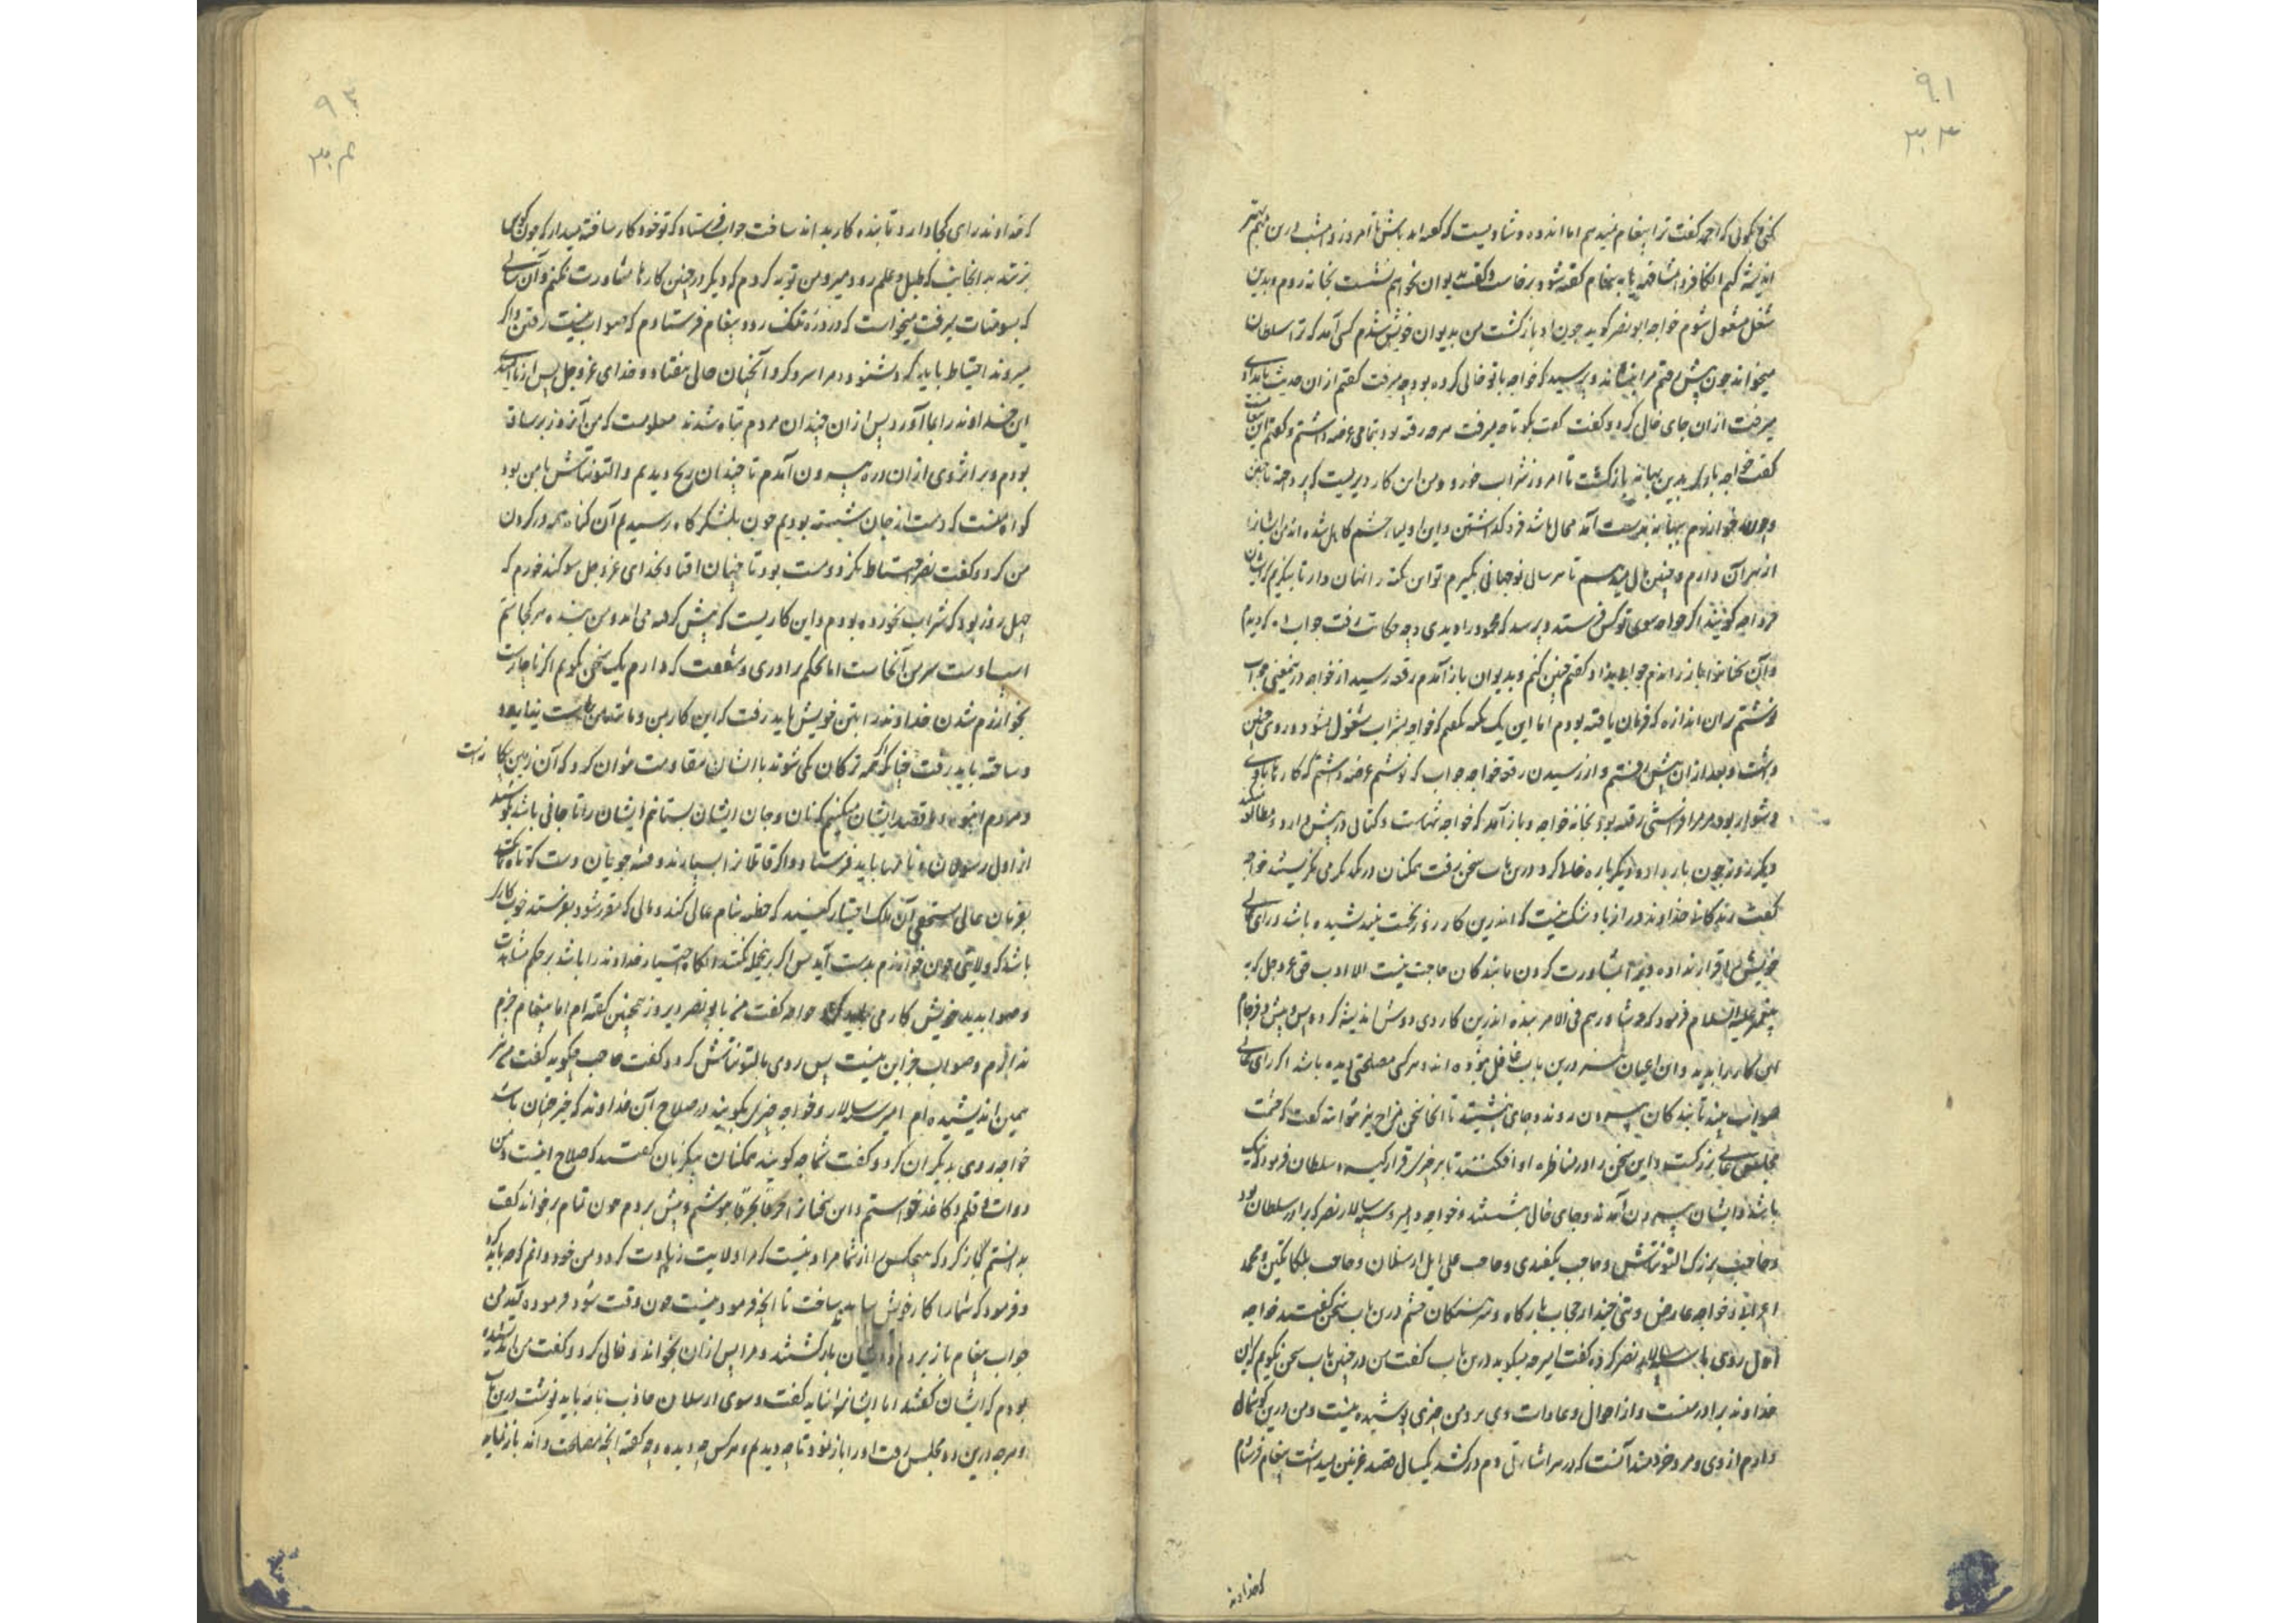 ۹۱
۳۰۳
کنی بگوئی که احمد گفت ترا پیغام نمیدهم اما اندوه و شادیست که گفته اند باش تا امروز و امشب درین مهم بهتر
اندیشه کنم آنگاه فردا مشافهه یا به پیغام گفته شود برخاست و گفت به دیوان نخواهم نشست بخانه روم و بدین
شغل مشغول شوم خواجه ابونصر گوید چون او بازگشت من بدیوان خویش شدم کسی آمد که ترا سلطان
میخواند چون پیش رفتم مرا بنشاند و پرسید که خواجه با تو خالی کرده بود چه میرفت گفتم ازان حدیث بامدادی
میرفت ازان جای خالی کرد و گفت بگو تا چه میرفت هرچه رفته بود تمامی عرضه داشتم و گفتم این
گفت خواجه بدین بهانه بازگشت تا امروز شراب خورد و من این کار دیریست که
خوارزم بهانه بدست آمد محال باشد فرو گذاشتن و این اولیا و حشم کاهل شده اند من ایشانرا
از بهر آن دارم و چنین مال میدهم تا هر سالی نو جهانی بگیرم تو این نکته را نهان دار تا بنگرم که ایشان
فردا چه گویند اگر خواجه سوی تو کس فرستد و پرسد که محمود را دیدی و چه حکایت رفت جواب ده که دیدم
و آن سخنانرا باز راندم جواب نداد گفتم چنین کنم و بدیوان باز آمدم رقعه رسید از خواجه درین معنی جواب
نوشتم بران اندازه که فرمان یافته بودم اما این یک نکته نگفتم که خواجه بشراب مشغول شود و روی چنین
داشت و بعد ازان پیش رفتم و از رسیدن رقعه خواجه و جواب که نوشتم عرضه داشتم که کارها
و مشرف بود مر مرا فرستی رفته بود بخانه خواجه و باز آمد که خواجه تنهاست و کتابی در پیش دارد و مطالعه میکند
دیگر روز چون بار بداد و دیگر باره خلا کرد درین باب سخن رفت همگنان در یکدیگر می نگریستند خواجه
گفت زندگانی خداوند دراز باد شک نیست که اندرین کار روز نخست نیندیشیده باشد و رای عالی
خویش را قرار نداده و نیز بمشاورت کردن ما بندگان حاجت نیست الا ادب حق عز و جل که به
پیغمبر علیه السلام فرمود که و شاورهم فی الامر بنده اندرین کار دی و دوش اندیشه کرد و پس و پیش و فرجام
این کار را بدید و این اعیان نیز درین باب غافل نبوده اند و هر کسی مصلحتی دیده باشد اگر رای عالی
صواب بیند تا بندگان بیرون روند و جای بنشینند تا آنجا سخن فراخ تر بتوانند گفت که حشمت
مجلس عالی بزرگست و این سخن را در مناظره او افکنند تا بر چیزی قرار گیرد سلطان فرمود که نیک
باشد و ایشان بیرون آمدند و جای خالی بنشستند و خواجه و امیر و سپهسالار نصر که برادر سلطان بود
و حاجب بزرگ التونتاش و حاجب بکتغدی و حاجب علی ایل ارسلان و حاجب بلکاتکین و محمد
اعرابی و خواجه عارض و تنی چند از حجاب بارگاه و سرهنگان حشم درین باب سخن گفتند خواجه
اول روی با سپهسالار نصر کرد و گفت امیر چه میگوید درین باب گفت من در چنین باب سخن نگویم که این
خداوند برادر منست و از احوال و عادات وی بر من چیزی پوشیده نیست و من درین گوشمال
دارم از وی و مرد خردمند آنست که در هر اشارتی دم درکشد یکسال قصد غزنین میداشت پیغام فرستادم
که خداوند
۹۲
۳۰۴
که خداوند رای کجا دارد تا بنده کار بداند ساخت جواب فرستاد که تو خود کار ساخته میدار که چون کوس
بزنند بدانجانب که طبل و علم رود میرو من توبه کردم که دیگر در چنین کارها مشاورت نکنم و آن سالی
که بسومنات میرفت میخواست که در دره تنگ رود پیغام فرستادم که صواب نیست رفتن و اگر
میروند احتیاط باید کرد نشنود و مرا سرد کرد و آنچنان حالی بیفتاد و خدای عز و جل پس از ناامیدی
این خداوند را بما آورد پس ازان چندان مردم تباه شدند معلومست که من آنروز بر ساقه
بودم و بر اثر وی ازان دره بیرون آمدم تا چندان رنج دیدم و التونتاش با من بود
گواه منست که دست از جان شسته بودیم چون بلشکرگاه رسیدیم آن گناه همه در گردن
من کرد و گفت نصر احتیاط نکرد و مست بود تا چنان افتاد بخدای عز و جل سوگند خورم که
چهل روز بود که شراب نخورده بودم و این کاریست که پیش گرفته می آید و من بنده هر کجا سم
اسب اوست سر من آنجاست اما بحکم برادری و شفقت که دارم یک سخن بگویم اگر ناچارست
بخوارزم شدن خداوند را بتن خویش باید رفت که این کار بمن و مانند من راست نیاید
و ساخته باید رفت چنانکه اگر همه ترکان یکی شوند با ایشان مقاومت توان کرد که آن زمین
و مردم انبوه و قصد ایشان میکنیم که نان و جان ایشان بستانیم ایشان را تا جانی باشد بکوشند
از اول رسولان و نامها باید فرستاد و اگر قاتلانرا بسپارند و فتنه جویان دست کوتاه کنند
بفرمان عالی مستخفی آن ملک اختیار کنند که خطبه بنام عالی کند و مالی که مقرر شود بفرستد خود کاری
باشد که ولایتی چون خوارزم بدست آید پس اگر برینجمله نکنند آنگاه اختیار خداوند را باشد بر حکم مشاهدت
و صوابدید خویش کار می باید کرد خواجه گفت من با بونصر دیروز همچنین گفته ام اما پیغام جزم
ندادم و صواب جز این نیست پس روی بالتونتاش کرد و گفت حاجب چگوید گفت من نیز
همین اندیشیده ام امیر سپهسالار و خواجه چیزی بگویند در صلاح آن خداوند که خیر جهان باشد
خواجه روی بدیگران کرد و گفت شما چه گویید همگنان بیکزبان گفتند که صلاح اینست و من
دوات و قلم و کاغذ خواستم و این سخنانرا حرفا بحرف نوشتم و پیش بردم چون تمام برخواند گفت
بدانستم باز گرد که هیچکس را از شما مراد نیست که مرا ولایت زیادت گردد و من خود دانم که چه باید کرد
و فرمود که شما را کار خویش بباید ساخت تا آنچه فرمودنیست چون وقت شود فرموده آید من
جواب پیغام باز بردم و ایشان بازگشتند و مرا پس ازان بخواند و خالی کرد و گفت من اندیشیده
بودم که ایشان گفتند اما ایشانرا نباید گفت و سوی ارسلان جاذب نامه باید نوشت درین باب
و هرچه درین دو مجلس رفت او را باز نمود تا چه دیدیم و هر کس چه دیده و چه گفته آنچه مصلحت داند باز نماید